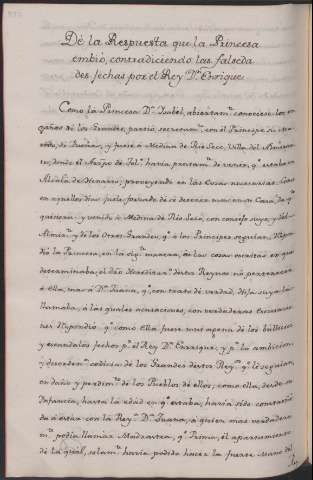 De la Respuesta que la Princesa
embió, contradiciendo las falseda
des fechas por el Rey Dn. Enrique
Como la Princesa Da. Isabel, abiertamte. conociese los en
gaños de los Grandes, partió secretamte. con el Principe su Ma
rido, de Dueñas, y fuese á Medina de Rio Seco, Villa del Almiran
te, donde el Arzpo. de Tol. havia prestamte. de venir, qe. estaba en
Alcalá de Henares, proveyendo en las cosas necesarias
en aquellos dias
quisieran. y venido á Medina de Rio Seco, con consejo suyo, y del
Almirte. y de los otros Grandes, qe. á los Principes seguian, respon
dió la Princesa, en la sigte. manera, á las cosas escritas en que
determinaba, el dro. Hereditario destos Reynos no pertenecer
á ella, mas á Da. Juana, qe. con tanta de verdad, Hija suya la
llamaba, á las quales acusaciones, con verdaderas
respondió, qe. como ella fuese muy agena de los bullicios
y escandalos fechos pr. el Rey Dn. Enrique, y pr. la ambicion
y desorden. codicia de los Grandes destos Reynos, qe. lo seguian
en daño y perdimto. de los Pueblos de ellos, como ella, desde su
Infancia, hasta la edad en qe. estaba, havia sido constreñi
da á estar con la Reyna Da. Juana, á quien mas verdadera
mte. podia llamar Madrastra, qe. Prima, el apartamiento
de la qual, solamte. havia podido hacer la fuerte Mano del